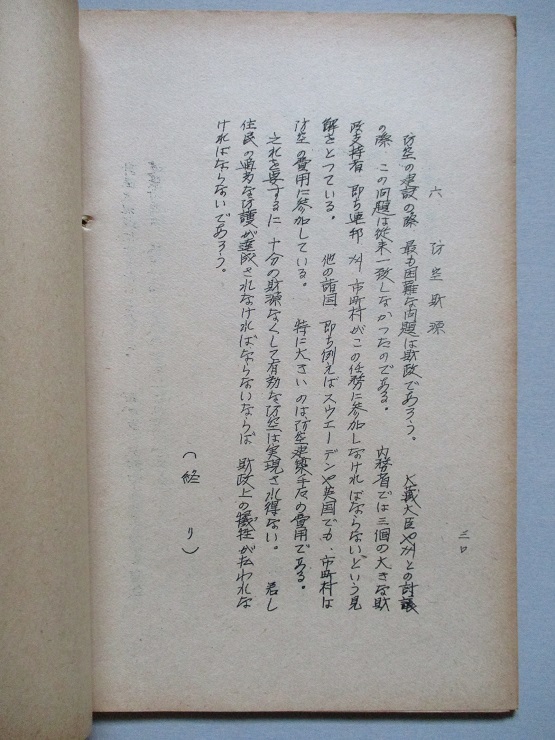 六 防空財源
防空の建設の際、最も困難な問題は財政であろう。 大蔵大臣や州との討議
の際、この問題は従来一致しなかつたのである。 内務省では三個の大きな財
政支持者、即ち連邦、州、市町村がこの任務に参加しなければならないという見
解をとつている。 他の諸国、即ち例えばスウエーデンや英国でも、市町村は
防空の費用に参加している。 特に大きいのは、防空建築手段の費用である。
之れを要するに、十分の財源なくして有効な防空は実現され得ない。 若し
住民の適当な防護が達成されなければならないならば、財政上の犠牲が払われな
ければならないであろう。
（終り）
三〇